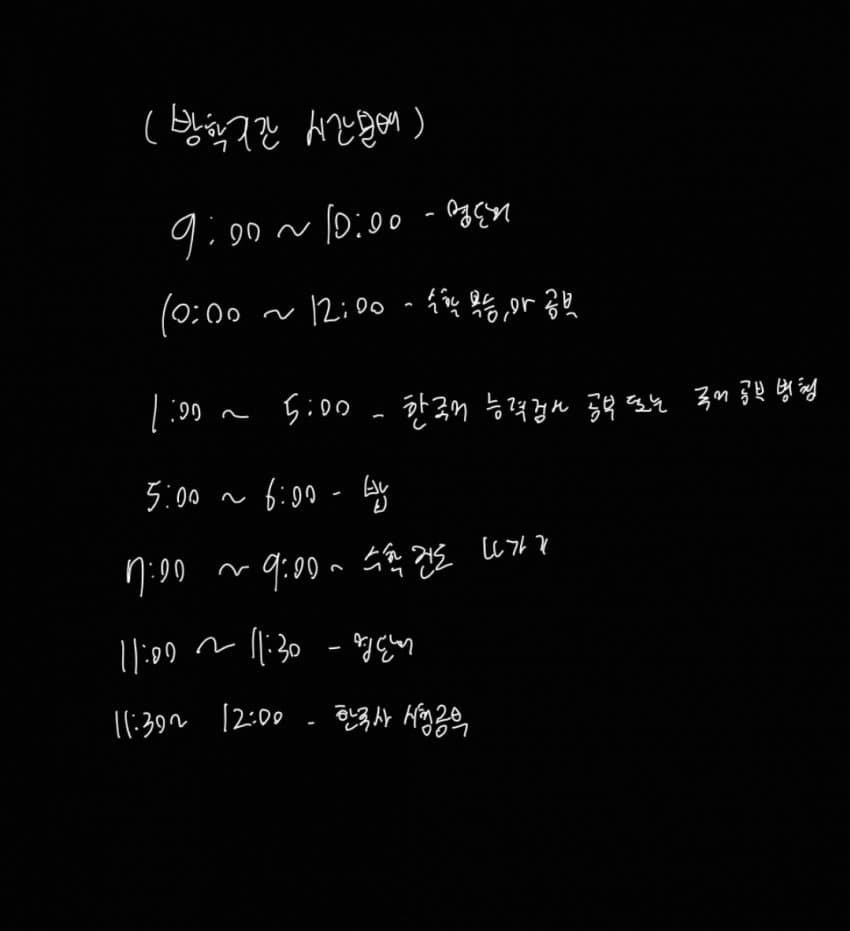 (방학기간 시간분배)
9:00 ~ 10:00 - 영단어
10:00 ~ 12:00 - 수학 복습, 공부
1:00 ~ 5:00 - 한국어 능력검사 공부 또는 국어 공부 병행
5:00 ~ 6:00 - 밥
7:00 ~ 9:00 ~ 수학 진도
11:00 ~ 11:30 - 영단어
11:30 ~ 12:00 - 한국사 시험공부